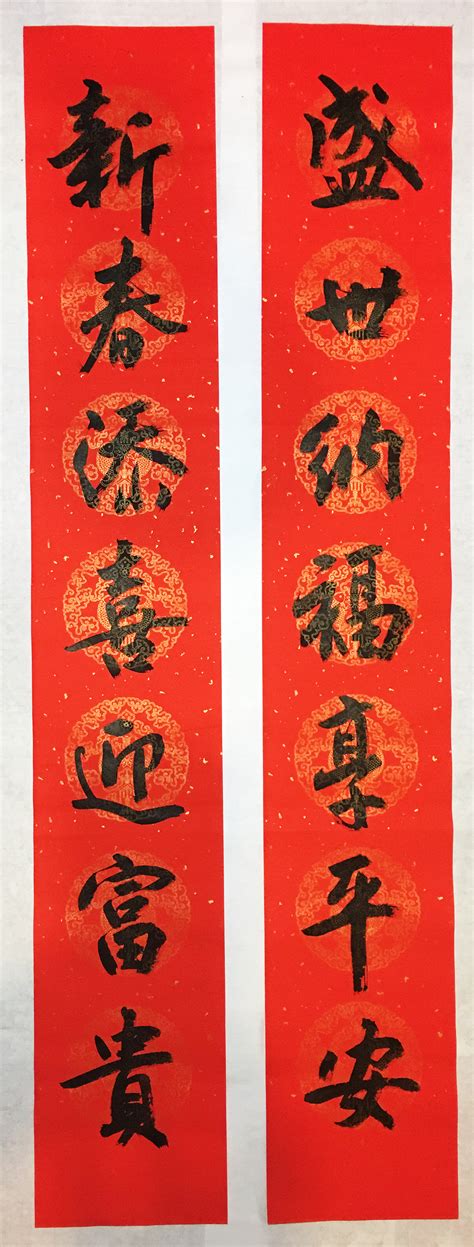 盛世纳福享平安
新春添喜迎富貴